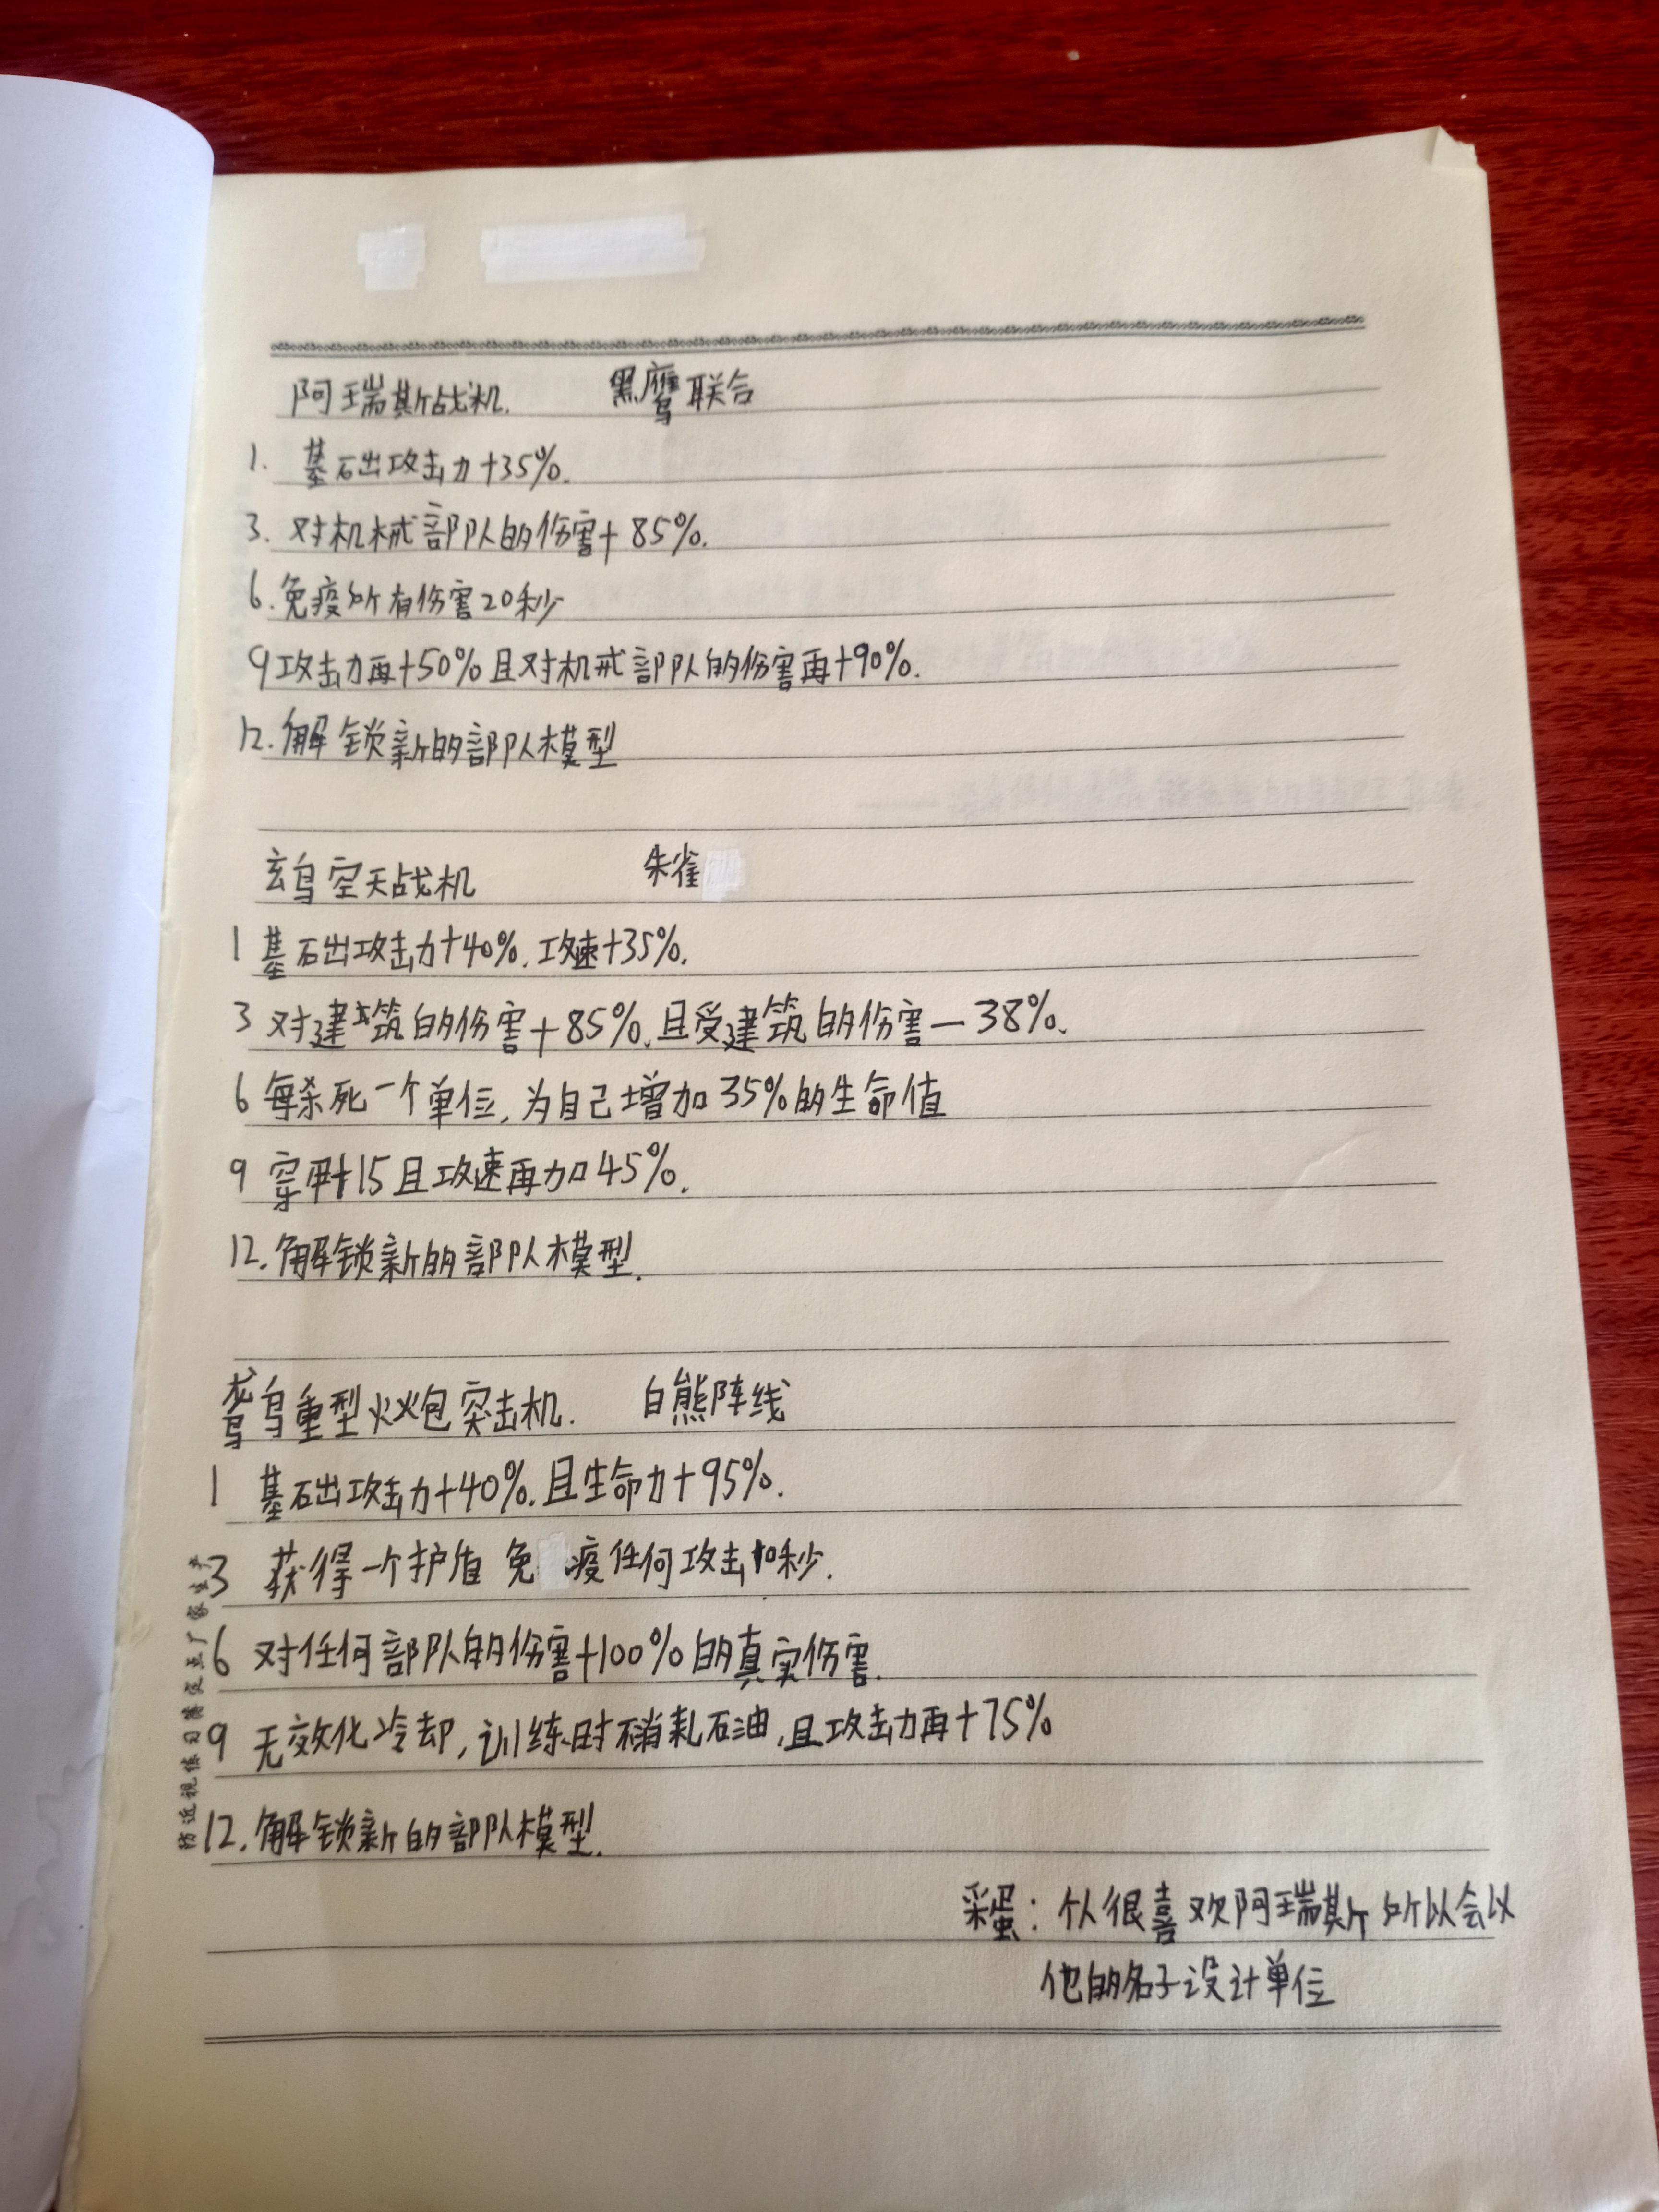 阿瑞斯战机. 黑鹰联合
1. 基础攻击力+35%.
3. 对机械部队的伤害+85%.
6. 免疫所有伤害20秒
9攻击力再+50%且对机戒部队的伤害再+90%.
12. 解锁新的部队模型
玄鸟空天战机 朱雀
1 基础攻击力+40%, 攻速+35%.
3 对建筑的伤害+85%.且受建筑的伤害-38%.
6 每杀死一个单位,为自己增加35%的生命值
9 穿甲+15且攻速再加45%.
12. 解锁新的部队模型.
鸟重型火炮突击机. 白熊阵线
1 基础攻击力+40%.且生命力+95%.
3 获得一个护盾 免疫任何攻击10秒.
6 对任何部队的伤害+100%的真实伤害.
9 无效化冷却,训练时不消耗石油,且攻击力再+75%
12. 解锁新的部队模型.
彩蛋: 个人很喜欢阿瑞斯所以会以
他的名子设计单位
防近视练习簿定点厂家生产